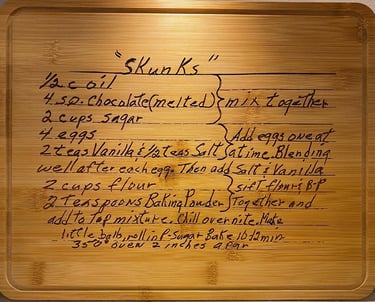 "Skunks"
1/2 c oil
4 sq. Chocolate (melted) } mix together
2 cups sugar
4 eggs } Add eggs one at
2 teas Vanilla & 1/2 teas Salt } a time. Blending
well after each egg. Then add Salt & Vanilla
2 cups flour } sift flour & BP
2 Teaspoons Baking Powder } Together and
add to top mixture. Chill over nite. Make
little balls, roll in P-Sugar Bake 10-12 min
350° oven 2 inches apar